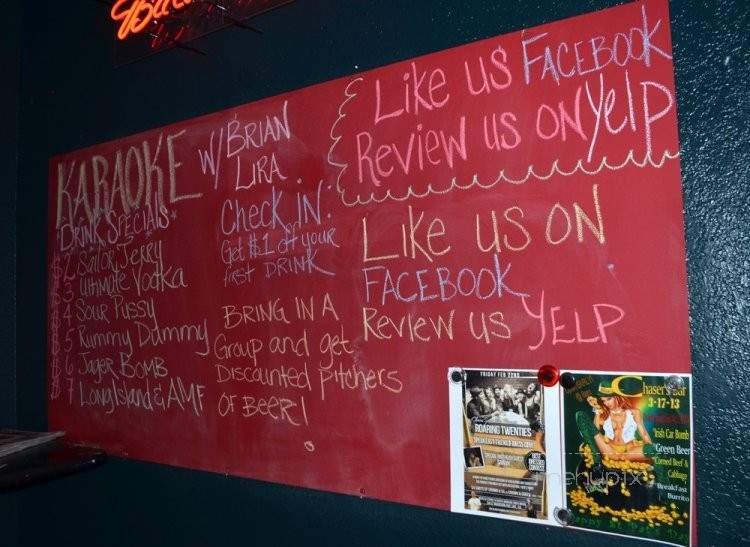 KARAOKE W/ BRIAN
LIRA
DRINK SPECIALS*
$2 Sailor Jerry
$3 Ultimate Vodka
$4 Sour Pussy
$5 Rummy Dummy
$6 Jager BOMB
$7 Long Island & AMF
Check IN:
Get $1 off your
first DRINK
BRING IN A
Group and get
Discounted Pitchers
OF BEER!
Like us FACEBOOK
Review us ON Yelp
Like us ON
FACEBOOK
Review us YELP
FRIDAY FEB 22ND
ROARING TWENTIES
BEST
DRESSED
CONTEST
Chaser's Bar
3-17-13
Irish Car Bomb
Green Beer
Corned Beef &
Cabbage
Breakfast
Burrito
menupix